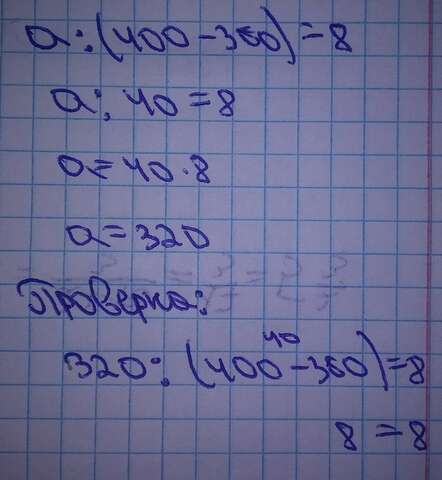 a:(400-360)=8
a:40=8
a=40·8
a=320
Проверка:
40
320:(400-360)=8
8=8